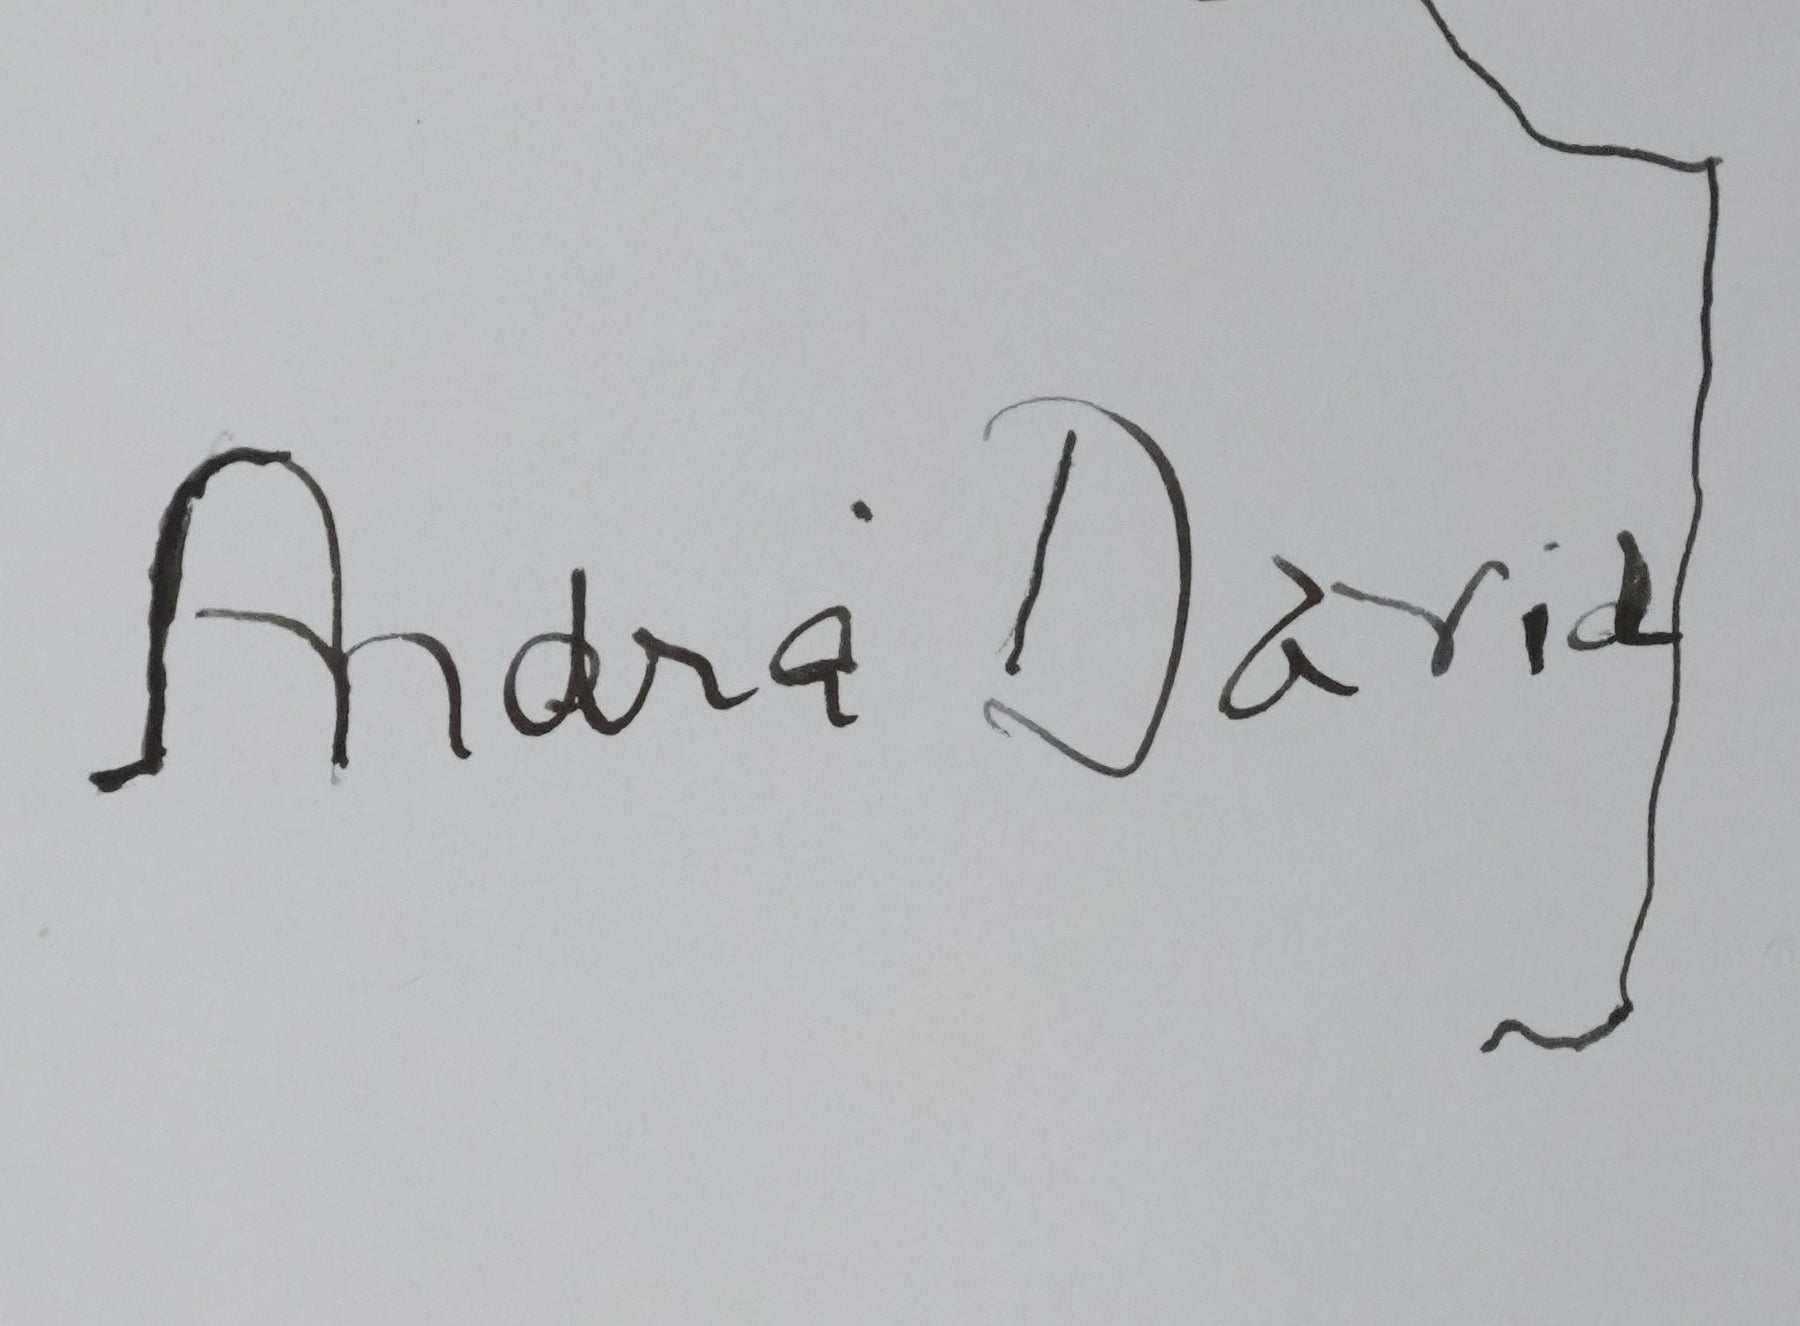 Andra David